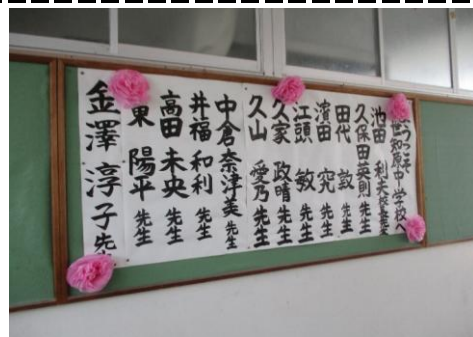 ようこそ世知原中学校へ
池田 利夫校長先生
久保田英則先生
田代 敦先生
濵田 究先生
江頭 敏先生
久家 政晴先生
久山 愛乃先生
中倉奈津美先生
井福 和利先生
高田 未央先生
東 陽平先生
金澤 淳子先生